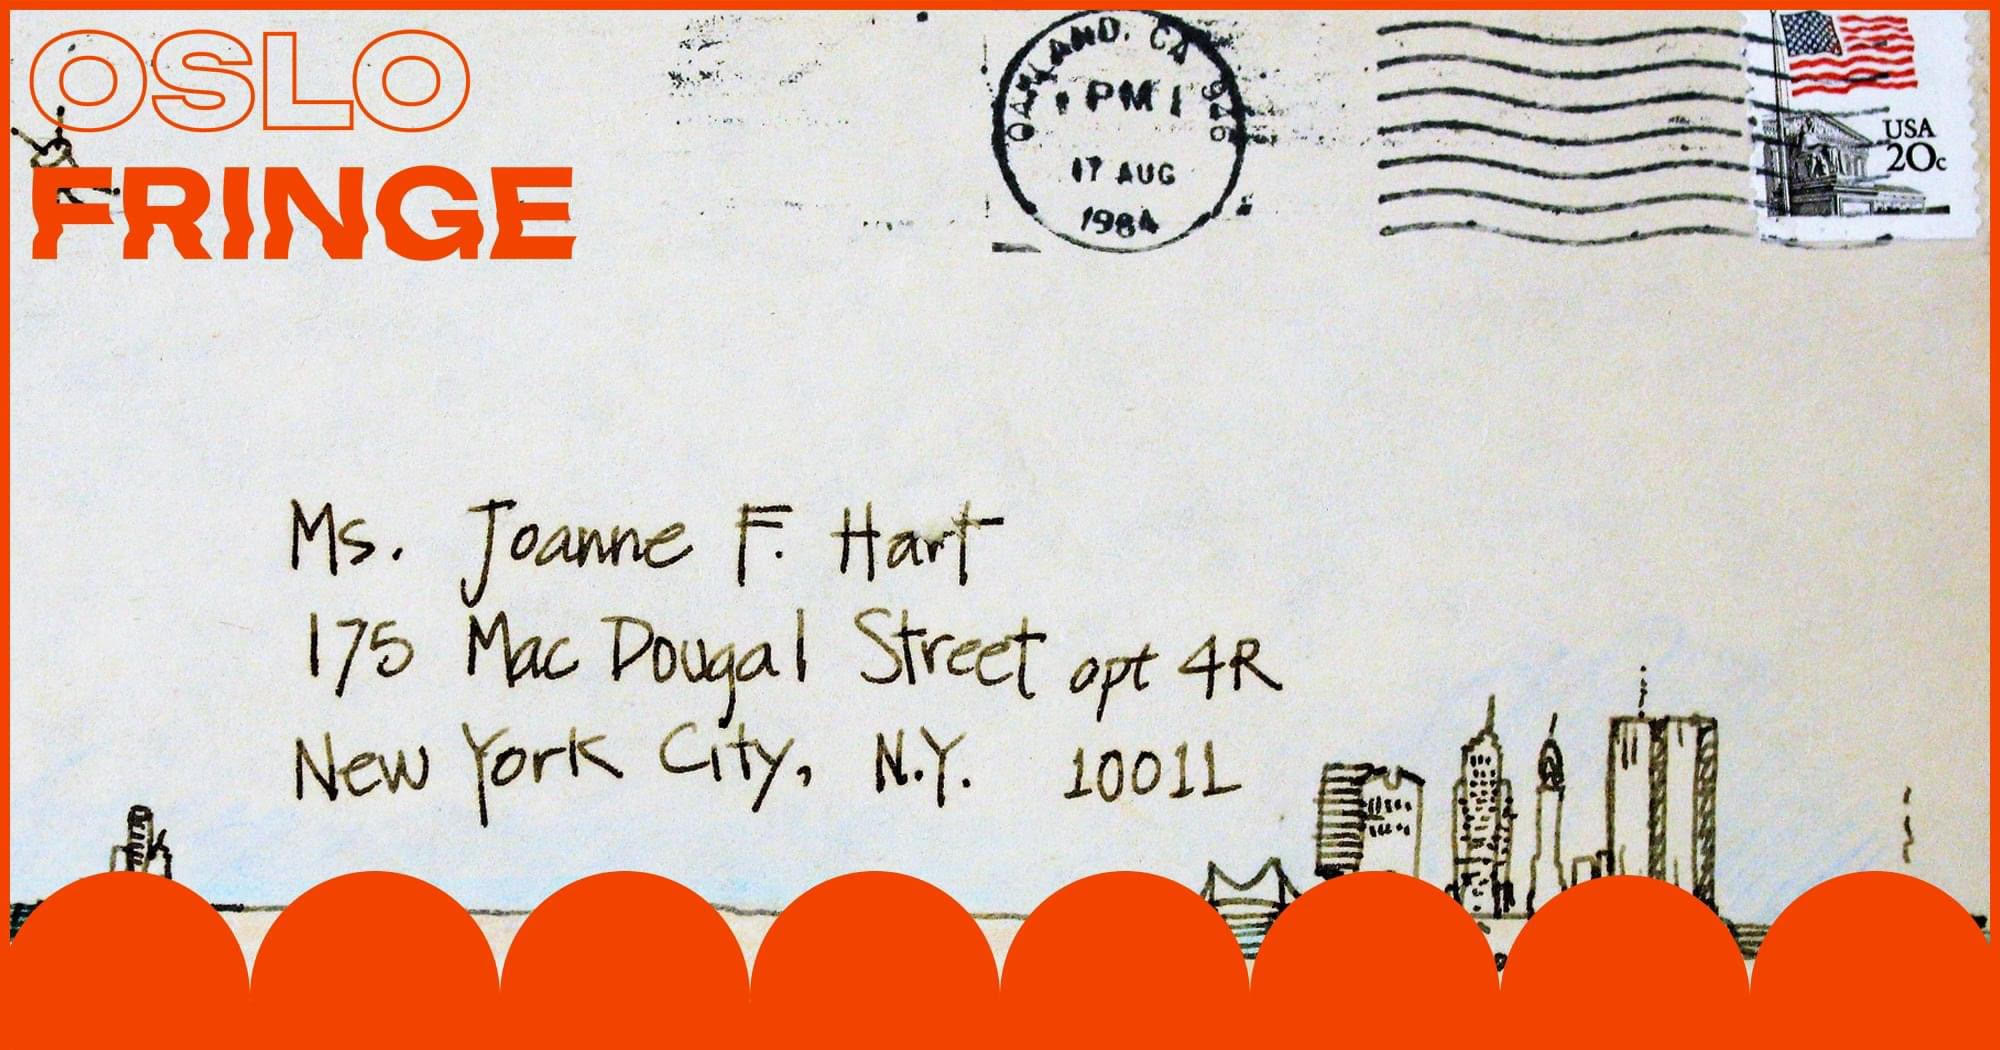 OSLO
FRINGE
OAKLAND, CA 946
PM 1
17 AUG
1984
USA
20c
Ms. Joanne F. Hart
175 MacDougal Street apt 4R
New York City, N.Y. 10011